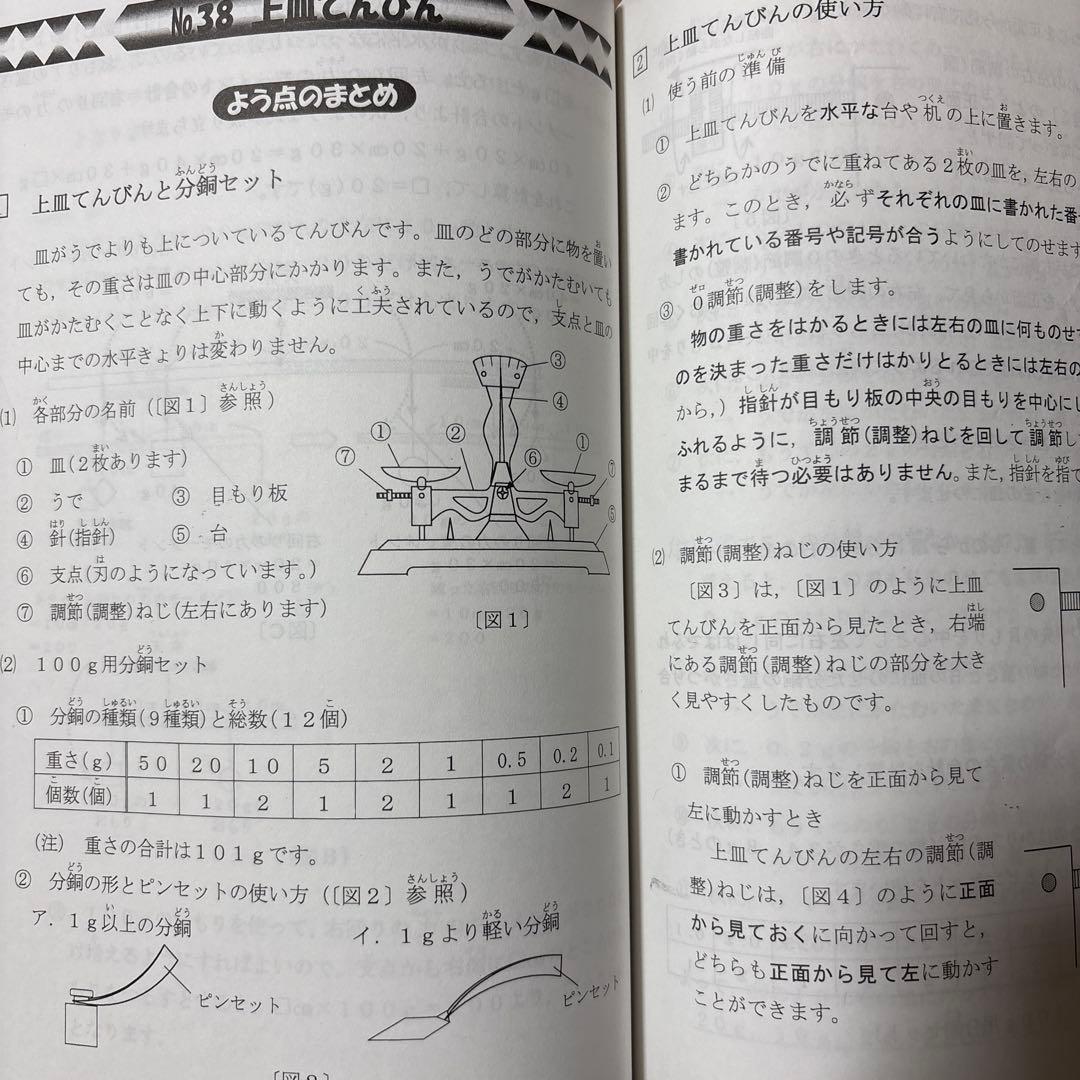 No.38 上皿てんびん
よう点のまとめ
上皿てんびんと分銅セット
皿がうでよりも上についているてんびんです。皿のどの部分に物を置い
ても，その重さは皿の中心部分にかかります。また，うでがかたむいても
皿がかたむくことなく上下に動くように工夫されているので，支点と皿の
中心までの水平きょりは変わりません。
(1) 各部分の名前（〔図１〕参照）
① 皿(２枚あります)
② うで ③ 目もり板
④ 針(指針) ⑤ 台
⑥ 支点(刃のようになっています。)
⑦ 調節(調整)ねじ(左右にあります)
③
④
① ② ①
⑦ ⑥ ⑦
⑤
〔図１〕
(2) １００ｇ用分銅セット
① 分銅の種類(９種類)と総数(１２個)
重さ(g) ５０ ２０ １０ ５ ２ １ 0.5 0.2 0.1
個数(個) １ １ ２ １ ２ １ １ ２ １
(注) 重さの合計は１０１ｇです。
② 分銅の形とピンセットの使い方（〔図２〕参照）
ア．１ｇ以上の分銅 イ．１ｇより軽い分銅
ピンセット ピンセット
〔図２
２ 上皿てんびんの使い方
(1) 使う前の準備
① 上皿てんびんを水平な台や机の上に置きます。
② どちらかのうでに重ねてある２枚の皿を，左右の
ます。このとき，必ずそれぞれの皿に書かれた番
書かれている番号や記号が合うようにしてのせます
③ ０調節(調整)をします。
物の重さをはかるときには左右の皿に何ものせ
のを決まった重さだけはかりとるときには左右の
から，）指針が目もり板の中央の目もりを中心にし
ふれるように，調節(調整)ねじを回して調節し
まるまで待つ必要はありません。また，指針を指で
(2) 調節(調整)ねじの使い方
〔図３〕は，〔図１〕のように上皿
てんびんを正面から見たとき，右端
にある調節(調整)ねじの部分を大き
く見やすくしたものです。
① 調節(調整)ねじを正面から見て
左に動かすとき
上皿てんびんの左右の調節(調
整)ねじは，〔図４〕のように正面
から見ておくに向かって回すと，
どちらも正面から見て左に動かす
ことができます。